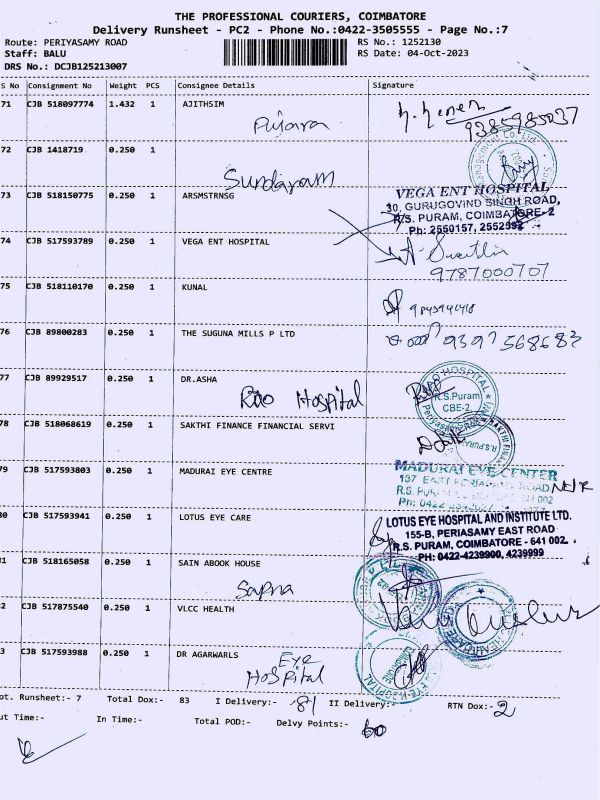 THE PROFESSIONAL COURIERS, COIMBATORE
Delivery Runsheet - PC2 - Phone No.:0422-3505555 - Page No.:7
Route: PERIYASAMY ROAD RS No.: 1252130
Staff: BALU RS Date: 04-Oct-2023
DRS No.: DCJB125213007
S No Consignment No Weight PCS Consignee Details Signature
71 CJB 518097774 1.432 1 AJITHSIM
9385985037
72 CJB 1418719 0.250 1
Sundaram
73 CJB 518150775 0.250 1 ARSMSTRNSG
VEGA ENT HOSPITAL
30, GURUGOVIND SINGH ROAD,
R/S. PURAM, COIMBATORE-2
Ph: 2550157, 2552592
74 CJB 517593789 0.250 1 VEGA ENT HOSPITAL
9787000707
75 CJB 518110170 0.250 1 KUNAL
76 CJB 89800283 0.250 1 THE SUGUNA MILLS P LTD
9397568683
77 CJB 89929517 0.250 1 DR.ASHA
Rao Hospital
HOSPITAL
R.S.Puram
CBE-2
78 CJB 518068619 0.250 1 SAKTHI FINANCE FINANCIAL SERVI
79 CJB 517593803 0.250 1 MADURAI EYE CENTRE
MADURAI EYE CENTER
137 EAST PERIASAMY ROAD
80 CJB 517593941 0.250 1 LOTUS EYE CARE
LOTUS EYE HOSPITAL AND INSTITUTE LTD.
155-B, PERIASAMY EAST ROAD
R.S. PURAM, COIMBATORE - 641 002.
PH: 0422-4239900, 4239999
1 CJB 518165058 0.250 1 SAIN ABOOK HOUSE
Sapna
2 CJB 517875540 0.250 1 VLCC HEALTH
3 CJB 517593988 0.250 1 DR AGARWARLS
Eye
Hospital
ot. Runsheet:- 7 Total Dox:- 83 I Delivery:- 81 II Delivery:- RTN Dox:- 2
ut Time:- In Time:- Total POD:- Delvy Points:- 60